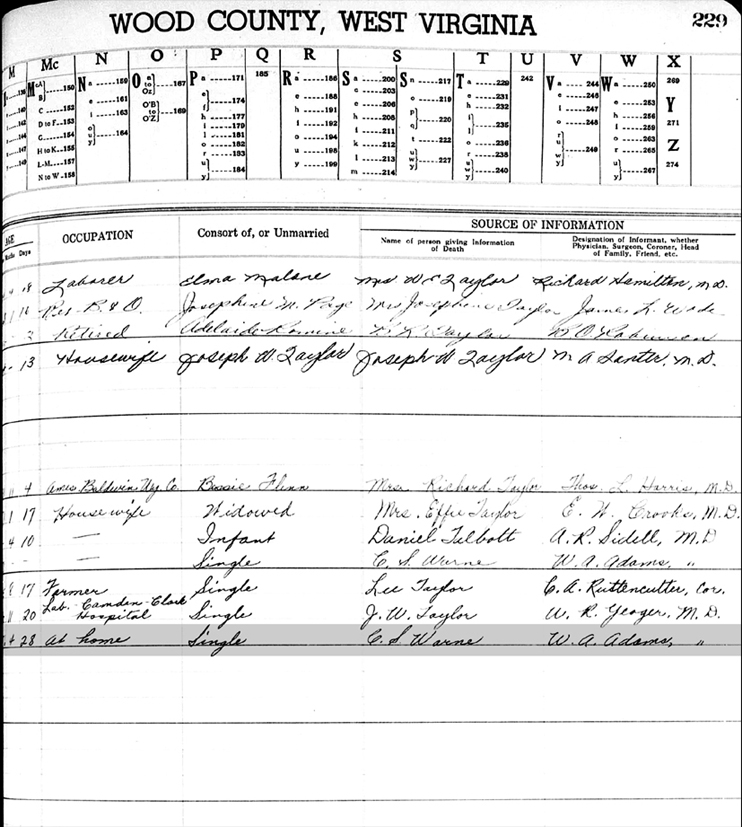 WOOD COUNTY, WEST VIRGINIA 229
M Mc N O P Q R S T U V W X
Mc A} B} 150 C 153 D to F 153 G 154 H to K 155 L-M 157 N to W 158
N a 159 e 161 i 163 o} u} y} 164
O a to Oz} 167 O'B to O'Z} 169
P a 171 e} f} 174 h 177 i 179 l 181 o 182 r 183 u} y} 184
185
R a 186 e 188 h 191 i 192 o 194 u 198 y 199
S a 200 c 203 e 206 h 208 i 211 k 212 l 213 m 214
S n 217 o 219 p} q} 220 t 222 u} w} y} 227
T a 229 e 231 h 232 i} l} 235 o 236 r 238 u} w} y} 240
242
V a 244 e 245 i 247 o 248 r} u} w} y} 249
W a 250 e 253 h 256 i 259 o 263 r 265 u} y} 267
269
Y
271
Z
274
AGE OCCUPATION Consort of, or Unmarried SOURCE OF INFORMATION
Days
Name of person giving Information of Death
Designation of Informant, whether Physician, Surgeon, Coroner, Head of Family, Friend, etc.
18 Laborer Elma Malone Mrs W E Taylor Richard Hamilton, M.D.
16 Ret. B. & O. Josephine M. Page Mrs Josephine Taylor James L. Wade
2 Retired Adelaide Romine Taylor
13 Housewife Joseph W. Taylor Joseph W Taylor M A Santer, M.D.
11 4 Ames Baldwin Wy. Co. Bessie Flenn Mrs. Richard Taylor Thos. L. Harris, M.D.
1 17 Housewife Widowed Mrs. Effie Taylor E. W. Crooks, M.D.
4 10 — Infant Daniel Talbott A. R. Sidell, M.D
— Single C. S. Warne W. A. Adams, "
8 17 Farmer Single Lee Taylor C. A. Ruttencutter, Cor.
11 20 Lab. Camden-Clark Hospital Single J. W. Taylor W. R. Yeager, M.D.
4 28 At home Single C. S. Warne W. A. Adams, "